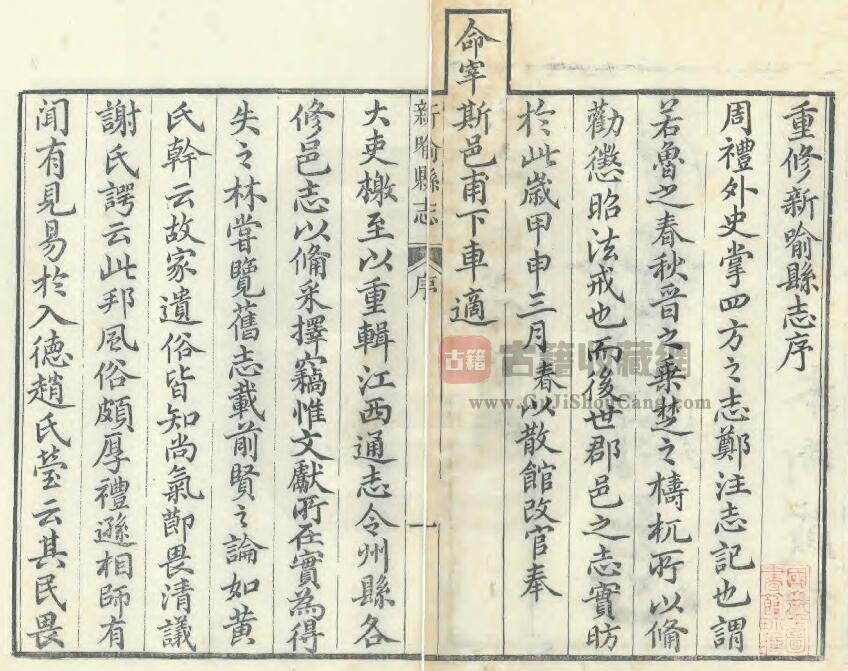 重修新喻縣志序
周禮外史掌四方之志鄭注志記也謂
若魯之春秋晉之乗楚之檮杌所以備
勸懲昭法戒也而後世郡邑之志實昉
於此歲甲申三月春以散館改官奉
命宰斯邑甫下車適
新喻縣志
序
一
大吏檄至以重輯江西通志令州縣各
修邑志以備采擇竊惟文獻所在實為得
失之林嘗覽舊志載前賢之論如黄
氏幹云故家遺俗皆知尚氣節畏清議
謝氏諤云此邦風俗頗厚禮遜相師有
聞有見易於入德趙氏瑩云其民畏
古籍 古籍收藏網
www.GuJiShouCang.com